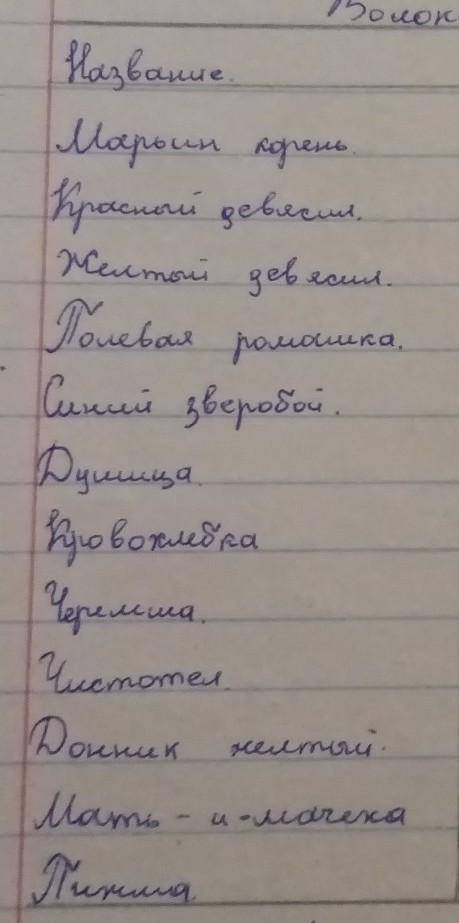 Название.
Марьин корень.
Красный девясил.
Желтый девясил.
Полевая ромашка.
Синий зверобой.
Душица.
Кровохлебка
Черемша.
Чистотел.
Донник желтый.
Мать-и-мачеха
Пижма.